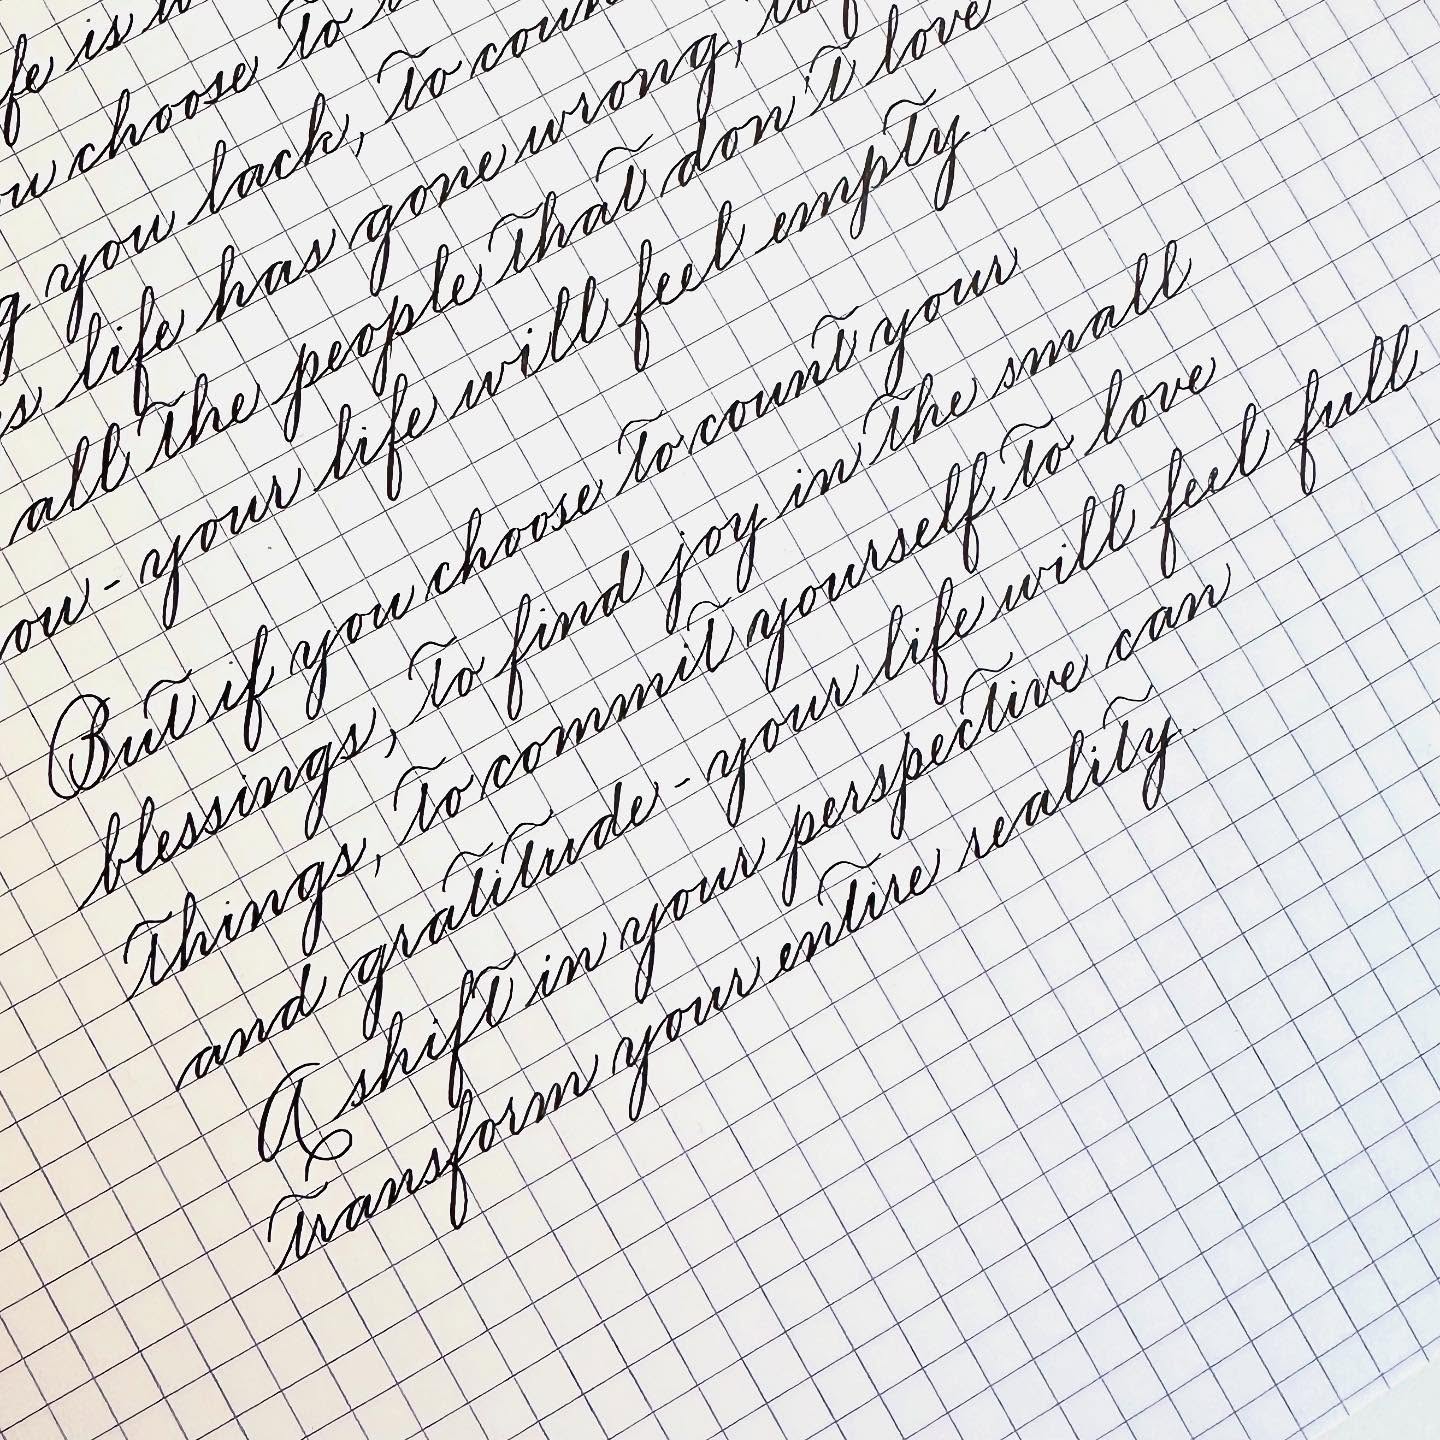 is
choose to
you lack, to
life has gone wrong,
all the people that don't love
your life will feel empty.
But if you choose to count your
blessings, to find joy in the small
things, to commit yourself to love
and gratitude - your life will feel full.
A shift in your perspective can
transform your entire reality.